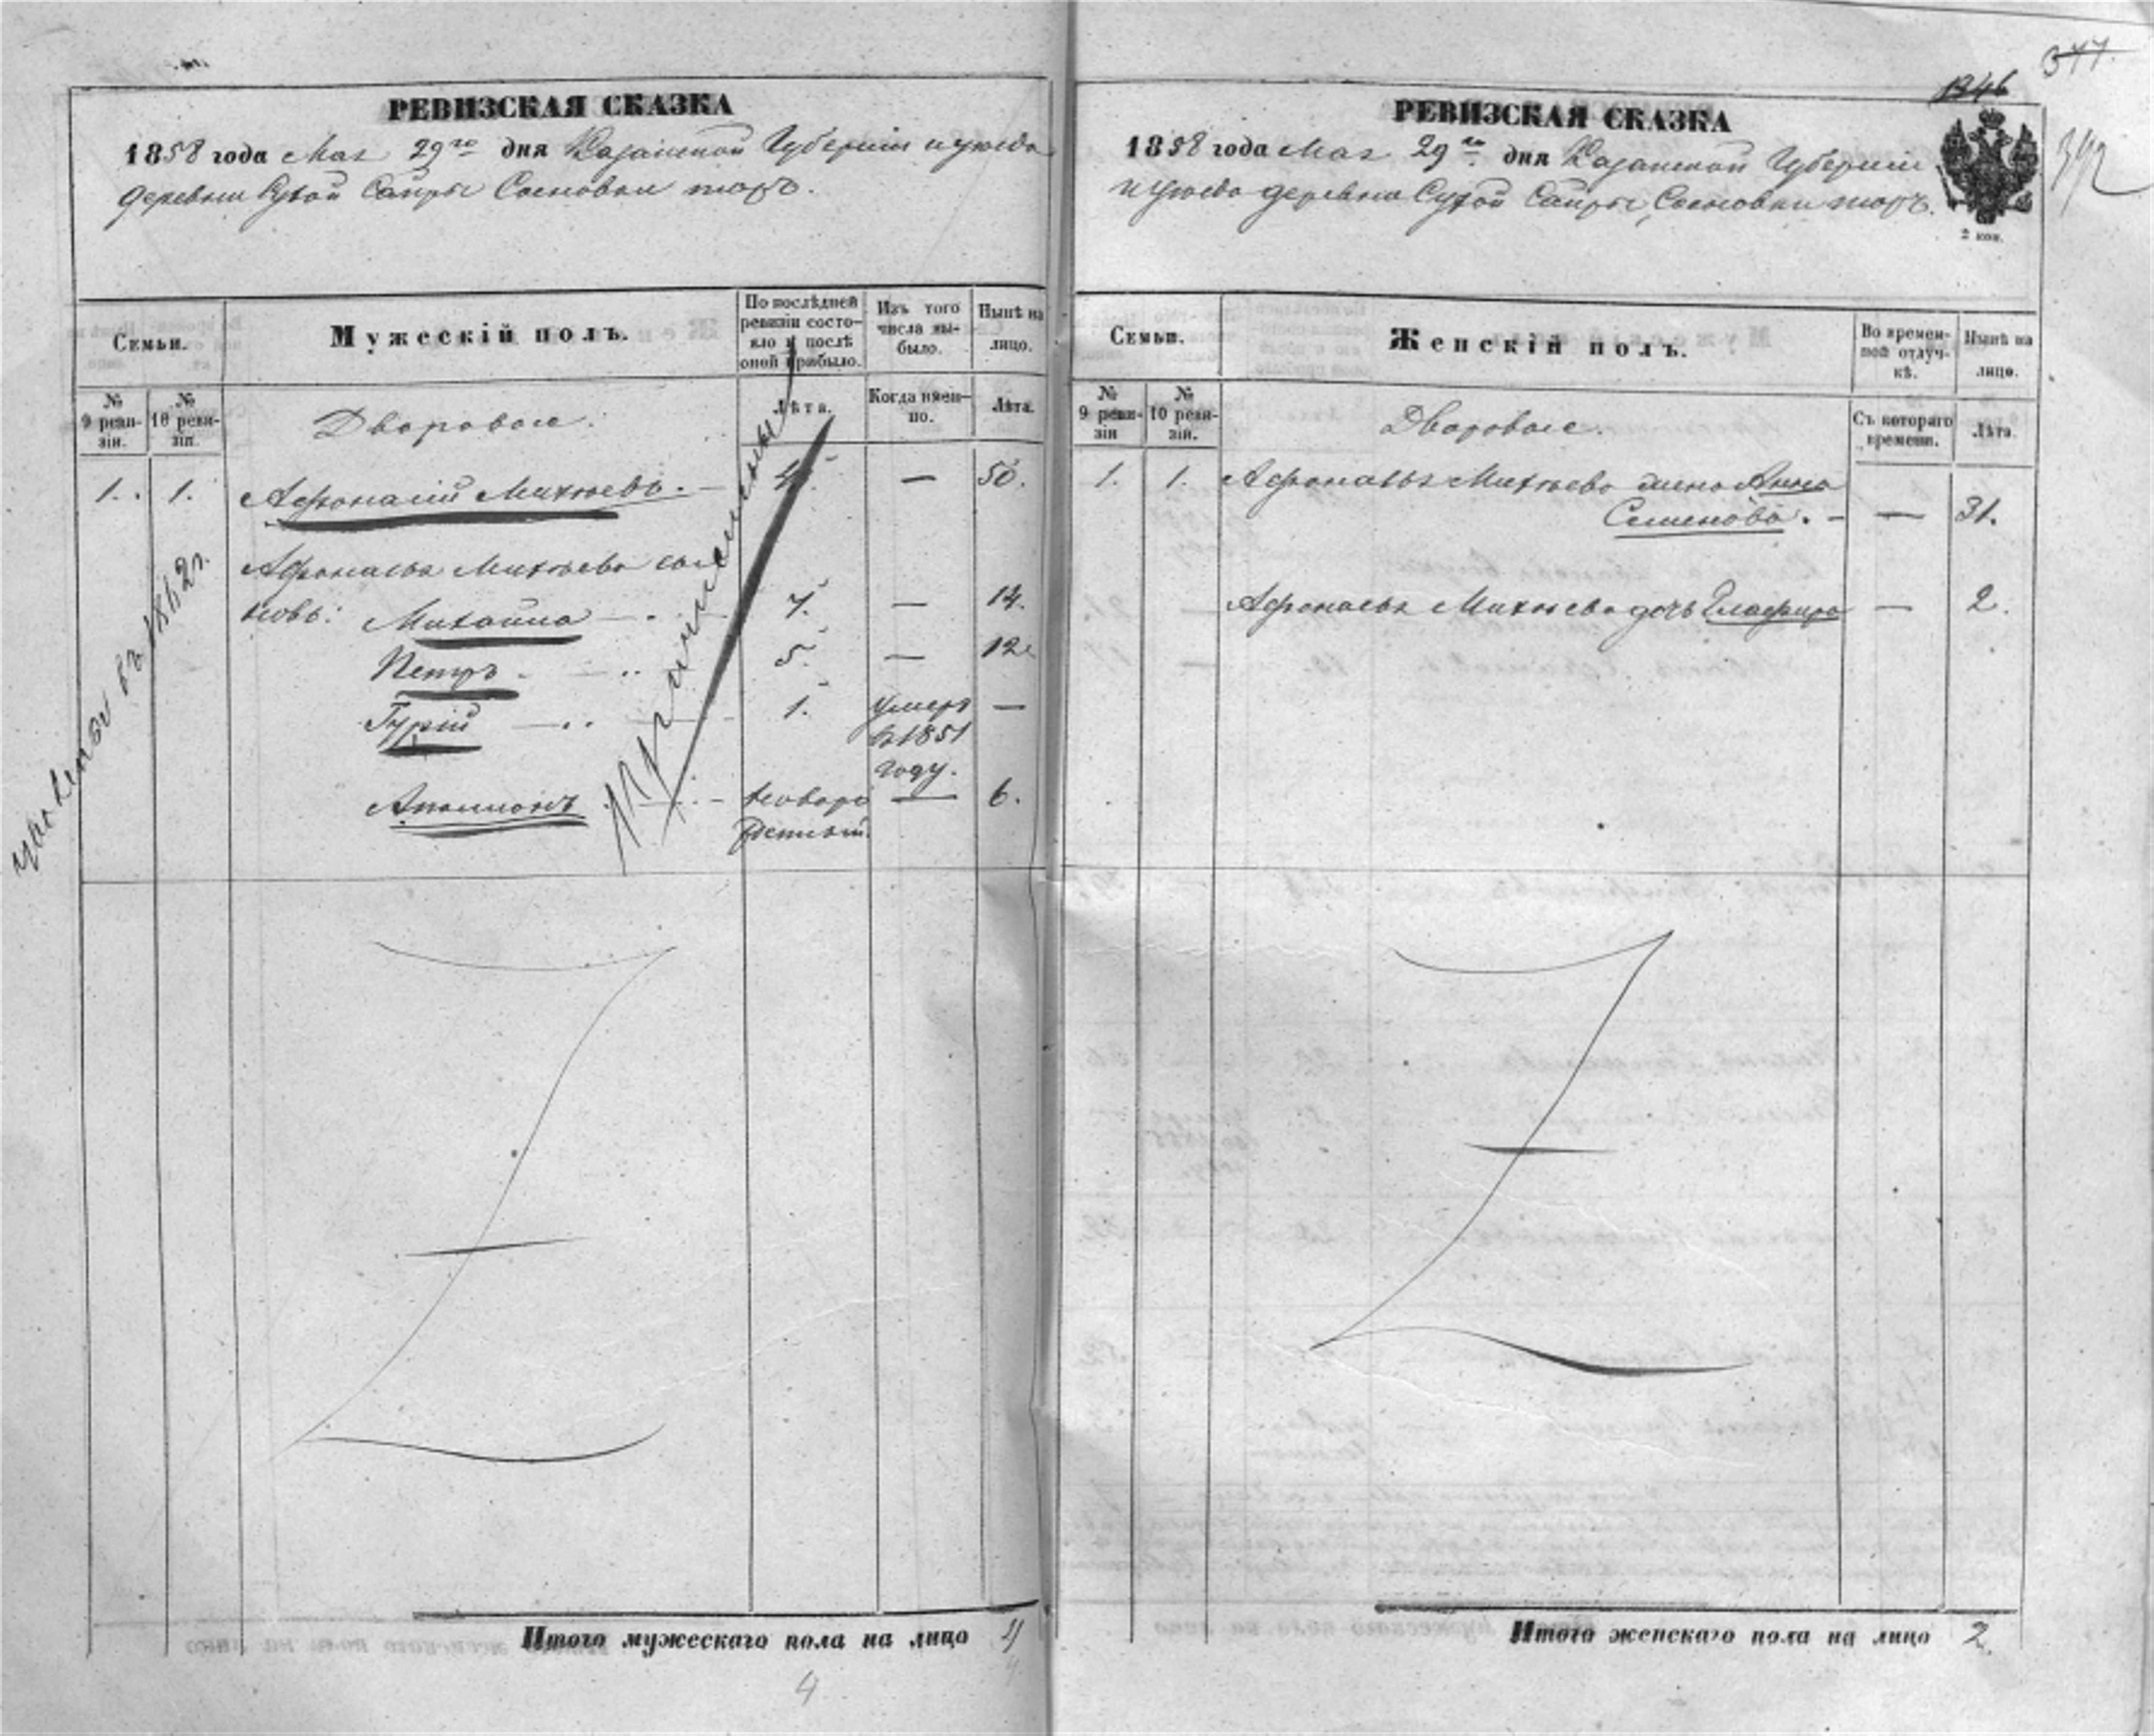 РЕВИЗСКАЯ СКАЗКА
1858 года Мая 29го дня Казанской Губернии и уезда
деревни Сухой Сапры Сосновки тожъ.
Семьи.
Мужескій полъ.
По послѣдней ревизіи состояло и послѣ оной прибыло.
Изъ того числа выбыло.
Нынѣ на лицо.
№ 9 ревизіи.
№ 10 ревизіи.
Дворовые.
Лѣта.
Когда именно.
Лѣта.
1. 1. Афонасій Михѣевъ. — — 50.
Афонасья Михѣева сы
новь: Михайла — 7. — 14.
Петръ — 5. — 12.
Гурій — 1. умеръ —
в 1851
году.
Аполлонъ — новоро — 6.
жденный.
въ 1862 г.
Итого мужескаго пола на лицо 4
4
377.
1346
392
РЕВИЗСКАЯ СКАЗКА
1858 года Мая 29го дня Казанской Губерніи
и уезда деревни Сухой Сапры, Сосновки тожъ.
2 коп.
Семьи.
Женскій полъ.
Во временной отлучкѣ.
Нынѣ на лицо.
№ 9 ревизіи
№ 10 ревизіи.
Дворовые.
Съ котораго времени.
Лѣта.
1. 1. Афонасья Михѣева жена Анна
Семенова. — — 31.
Афонасья Михѣева дочь Глафира — 2.
Итого женскаго пола на лицо 2.